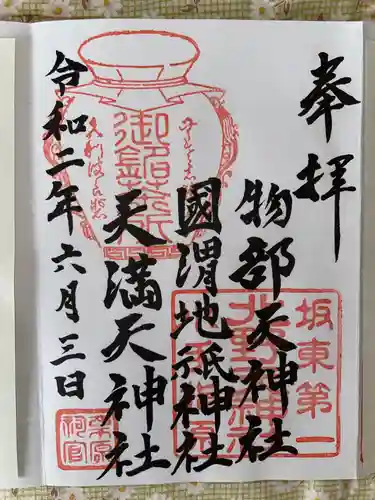 奉拝
坂東第一
北野天神
物部天神社
國渭地祇神社
天満天神社
令和二年六月三日